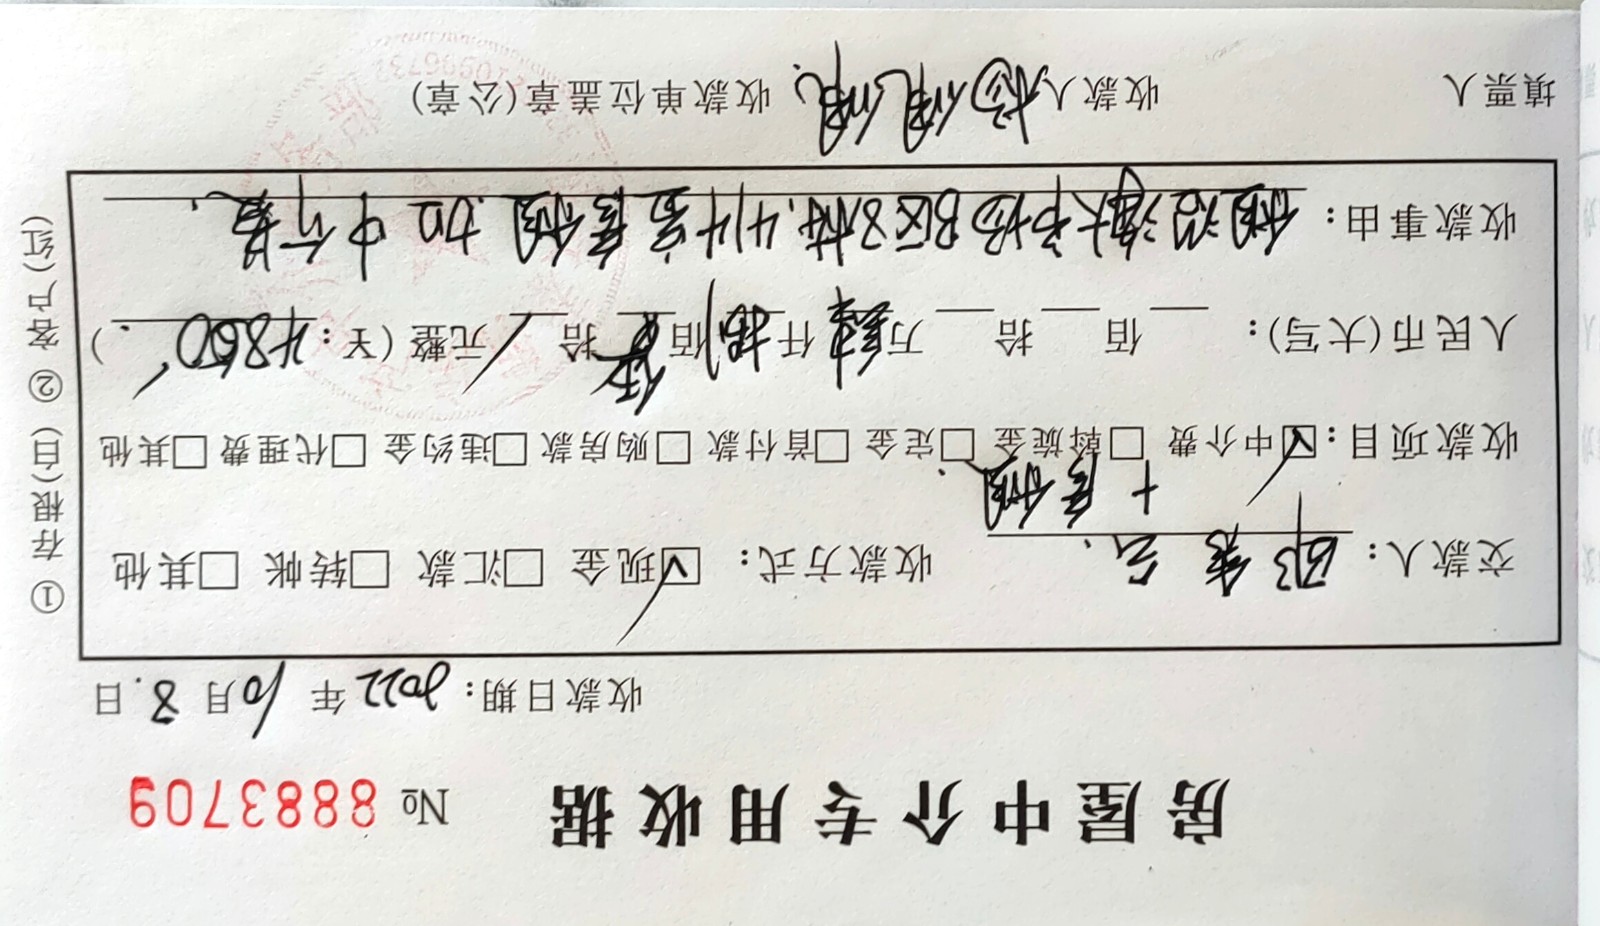 房屋中介专用收据 № 8883709
收款日期: 2022 年 10 月 8. 日
交款人: 收款方式: ☑现金 □汇款 □转帐 □其他
+房租
收款项目: ☑中介费 □斡旋金 □定金 □首付款 □购房款 □违约金 □代理费 □其他
人民币(大写): 佰 拾 万 肆 仟 捌 佰 伍 拾 / 元整 (¥: 4850 )
收款事由: B区8栋.414室房租 加中介费.
填票人 收款人 收款单位盖章(公章)
① 存根(白) ② 客户(红)